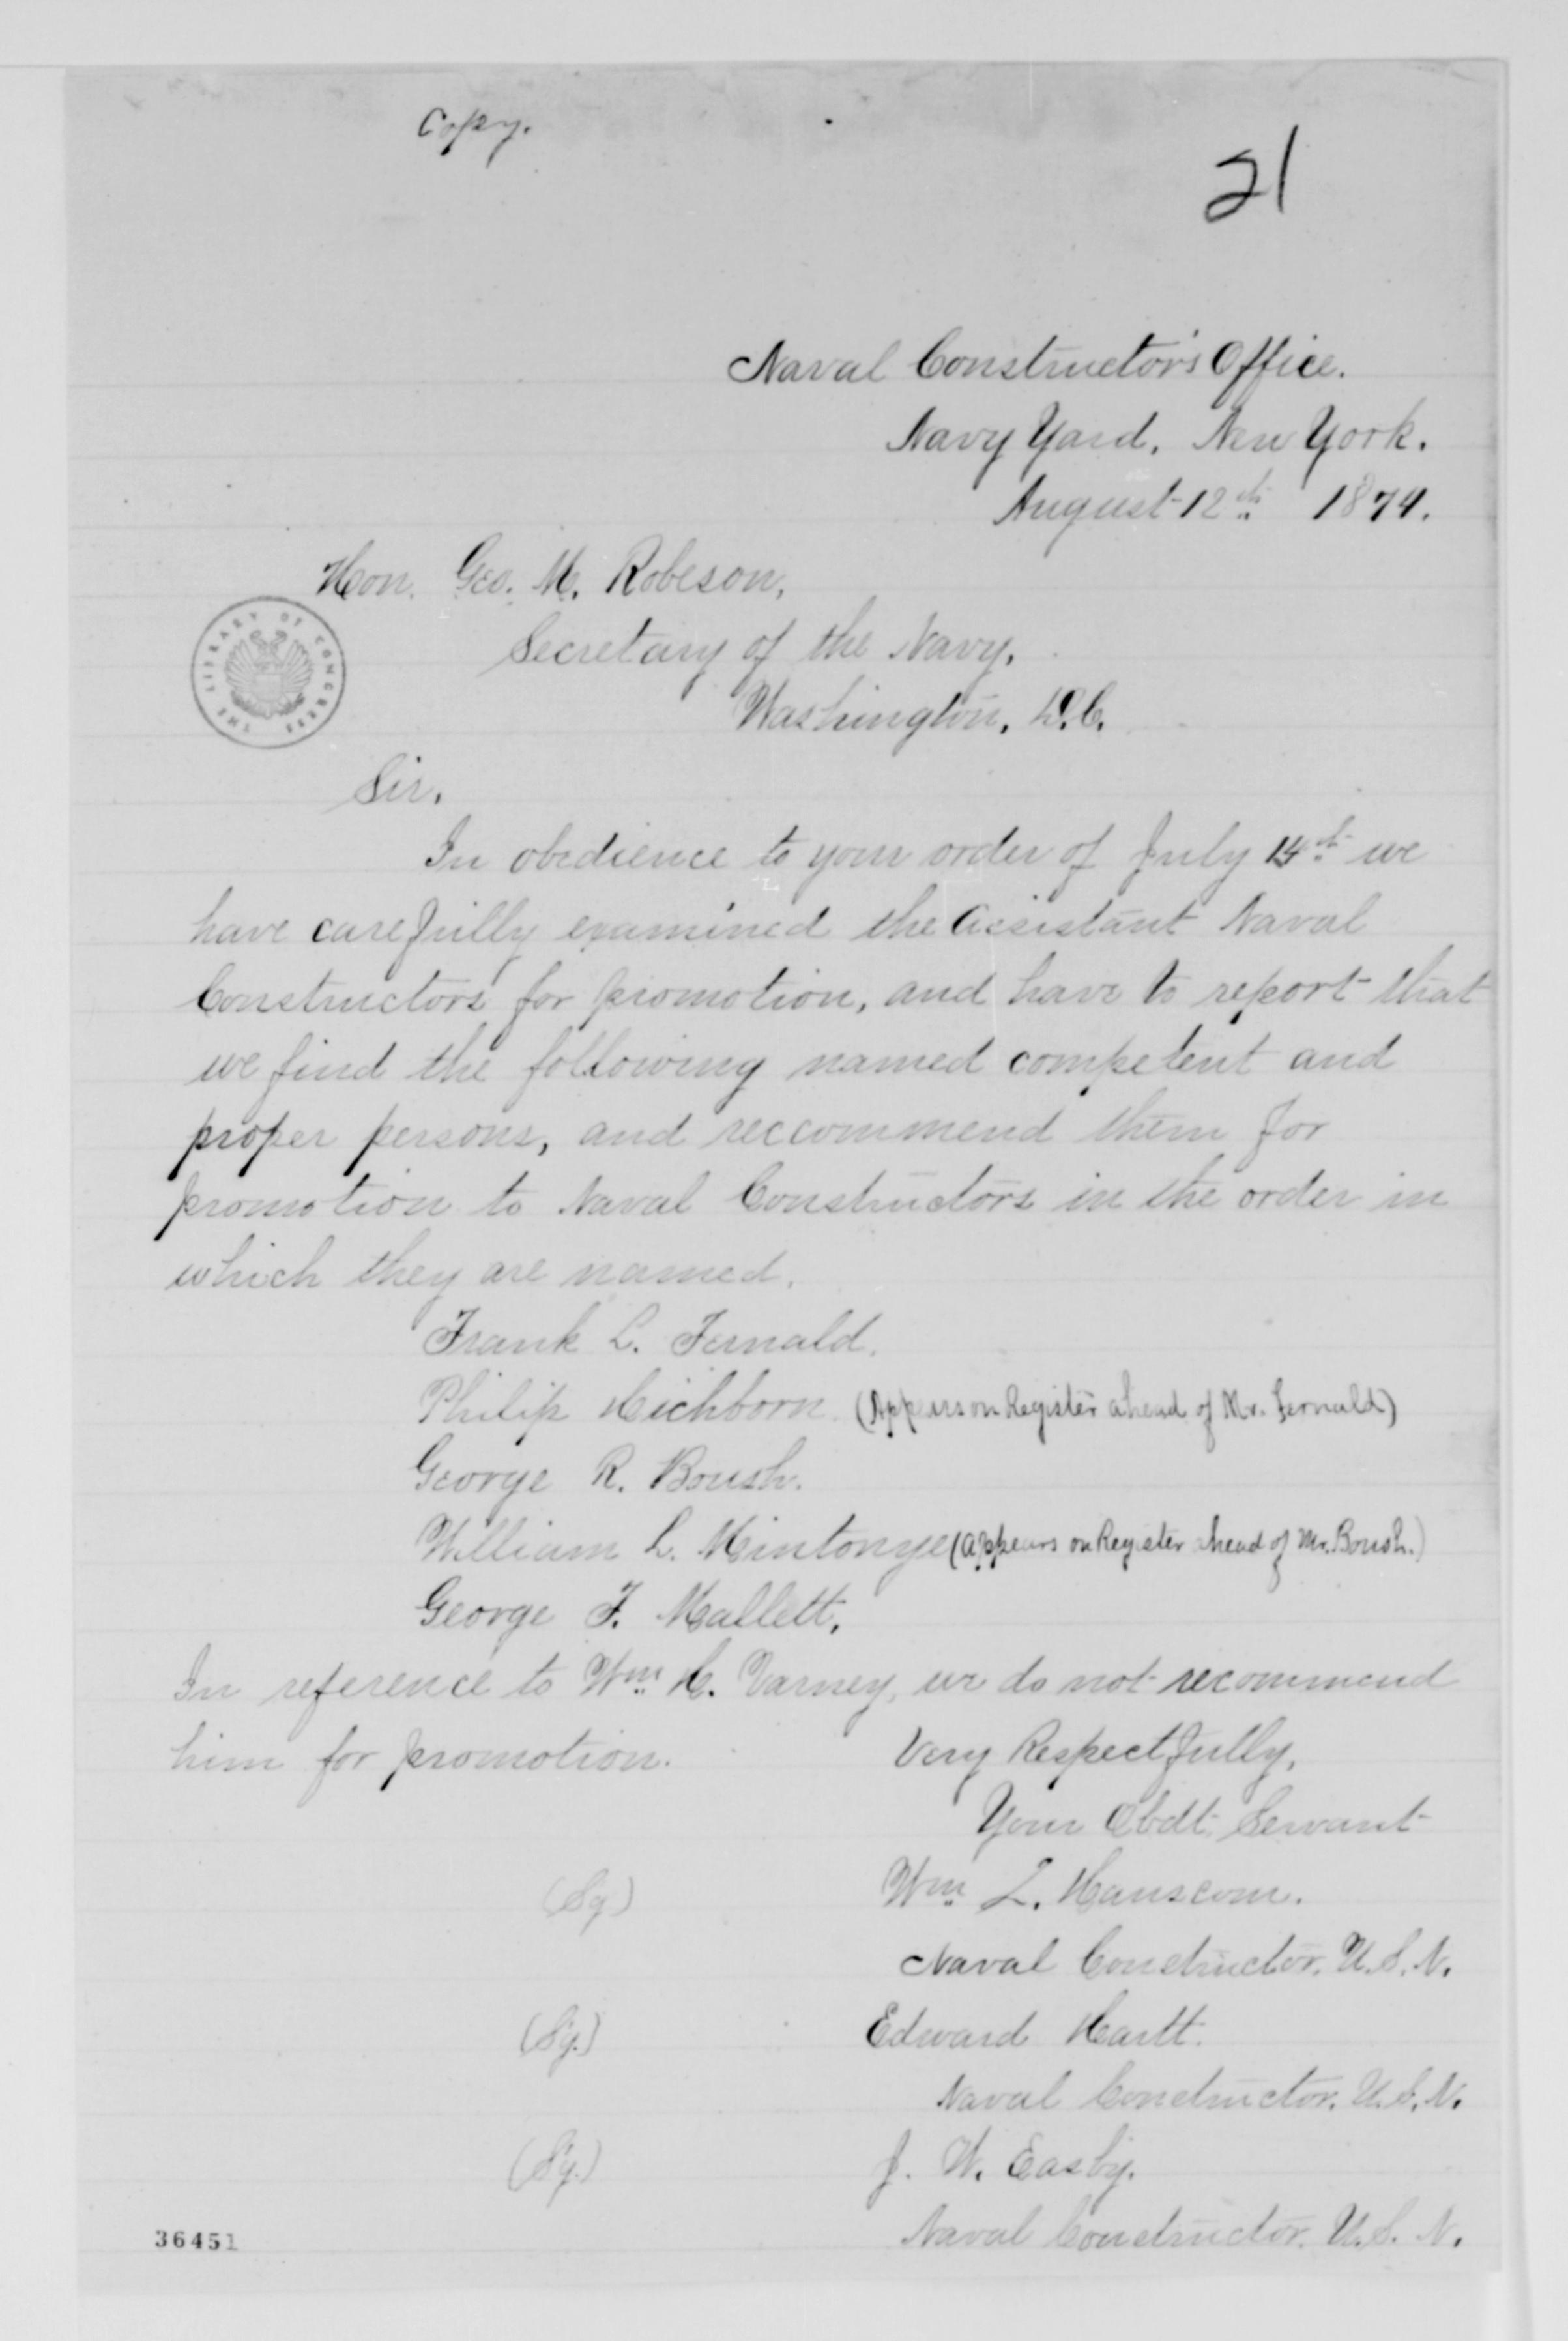 Copy.
21
Naval Constructor's Office.
Navy Yard, New York.
August 12th 1874.
Hon. Geo. M. Robeson,
Secretary of the Navy,
Washington, D.C.
THE LIBRARY OF CONGRESS
Sir,
In obedience to your order of July 14th we
have carefully examined the Assistant Naval
Constructors for promotion, and have to report that
we find the following named competent and
proper persons, and reccommend them for
promotion to Naval Constructors in the order in
which they are named.
Frank L. Fernald.
Philip Hichborn. (Appears on Register ahead of Mr. Fernald)
George R. Boush.
William L. Mintonye (Appears on Register ahead of Mr. Boush.)
George F. Mallett,
In reference to Wm. H. Varney, we do not recommend
him for promotion.
Very Respectfully,
Your Obdt. Servant
(Sg) Wm. L. Hanscom.
Naval Constructor, U.S.N.
(Sg.) Edward Hartt.
Naval Constructor, U.S.N.
(Sg.) J. W. Easby.
Naval Constructor, U.S.N.
36451